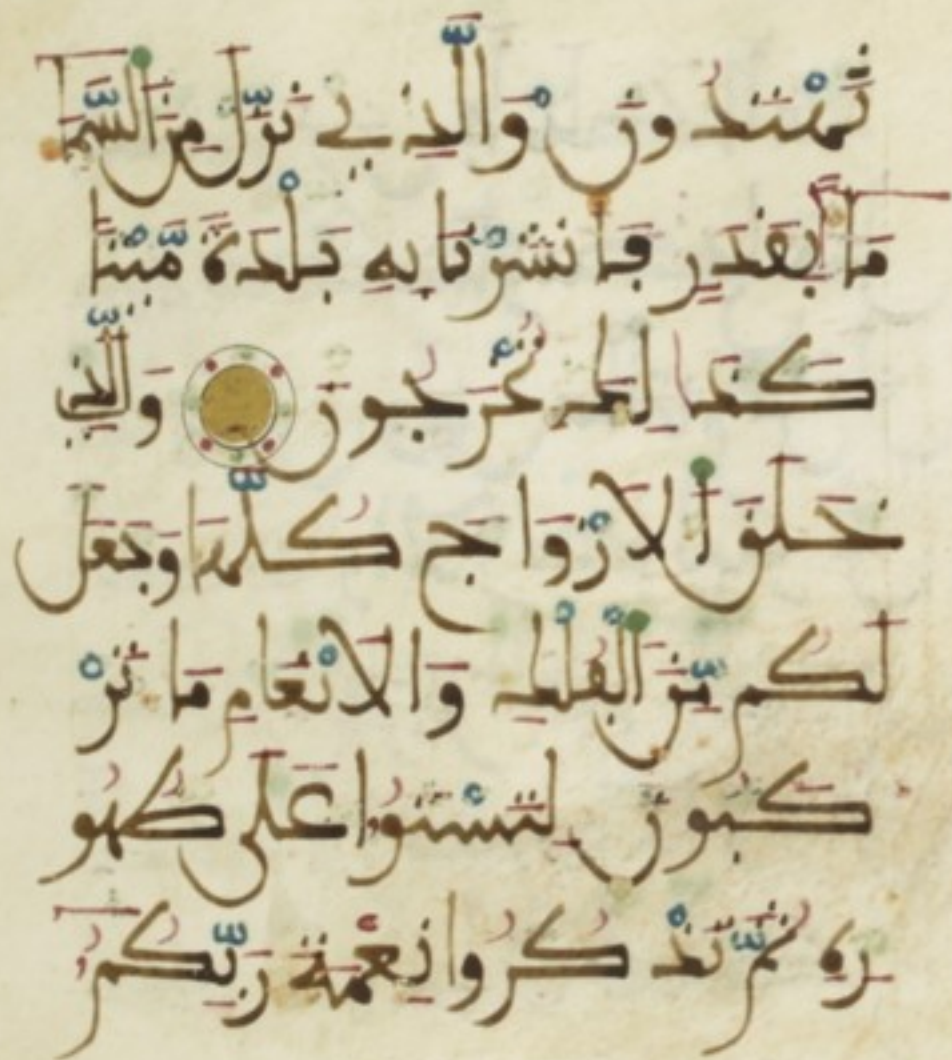 تَهْتَدُونَ وَالَّذِي نَزَّلَ مِنَ السَّمَا
مَا بِقَدَرٍ فَأَنشَرْنَا بِهِ بَلْدَةً مَّيْتًا
كَذَٰلِكَ تُخْرَجُونَ وَالَّذِي
خَلَقَ الْأَزْوَاجَ كُلَّهَا وَجَعَلَ
لَكُم مِّنَ الْفُلْكِ وَالْأَنْعَامِ مَا تَرْ
كَبُونَ لِتَسْتَوُوا عَلَى ظُهُو
رِهِ ثُمَّ تَذْكُرُوا نِعْمَةَ رَبِّكُمُ